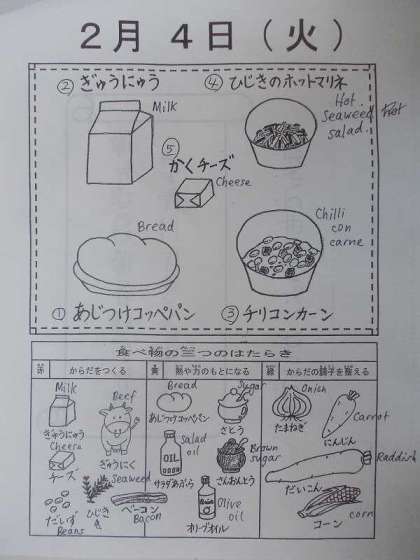 2月 4日（火）
② ぎゅうにゅう
Milk
④ ひじきのホットマリネ
Hot
Seaweed
salad
Hot
⑤
かくチーズ
Cheese
Bread
Chilli
con
carne
① あじつけコッペパン
③ チリコンカーン
食べ物の三つのはたらき
赤 からだをつくる
黄 熱や力のもとになる
緑 からだの調子を整える
Milk
ぎゅうにゅう
Beef
ぎゅうにく
Cheese
チーズ
Seaweed
ひじき
だいず
Beans
ベーコン
Bacon
Bread
あじつけコッペパン
Sugar
さとう
Salad
oil
OIL
サラダあぶら
Brown
sugar
さんおんとう
Olive
oil
オリーブオイル
Onion
たまねぎ
Carrot
にんじん
Raddish
だいこん
corn
コーン